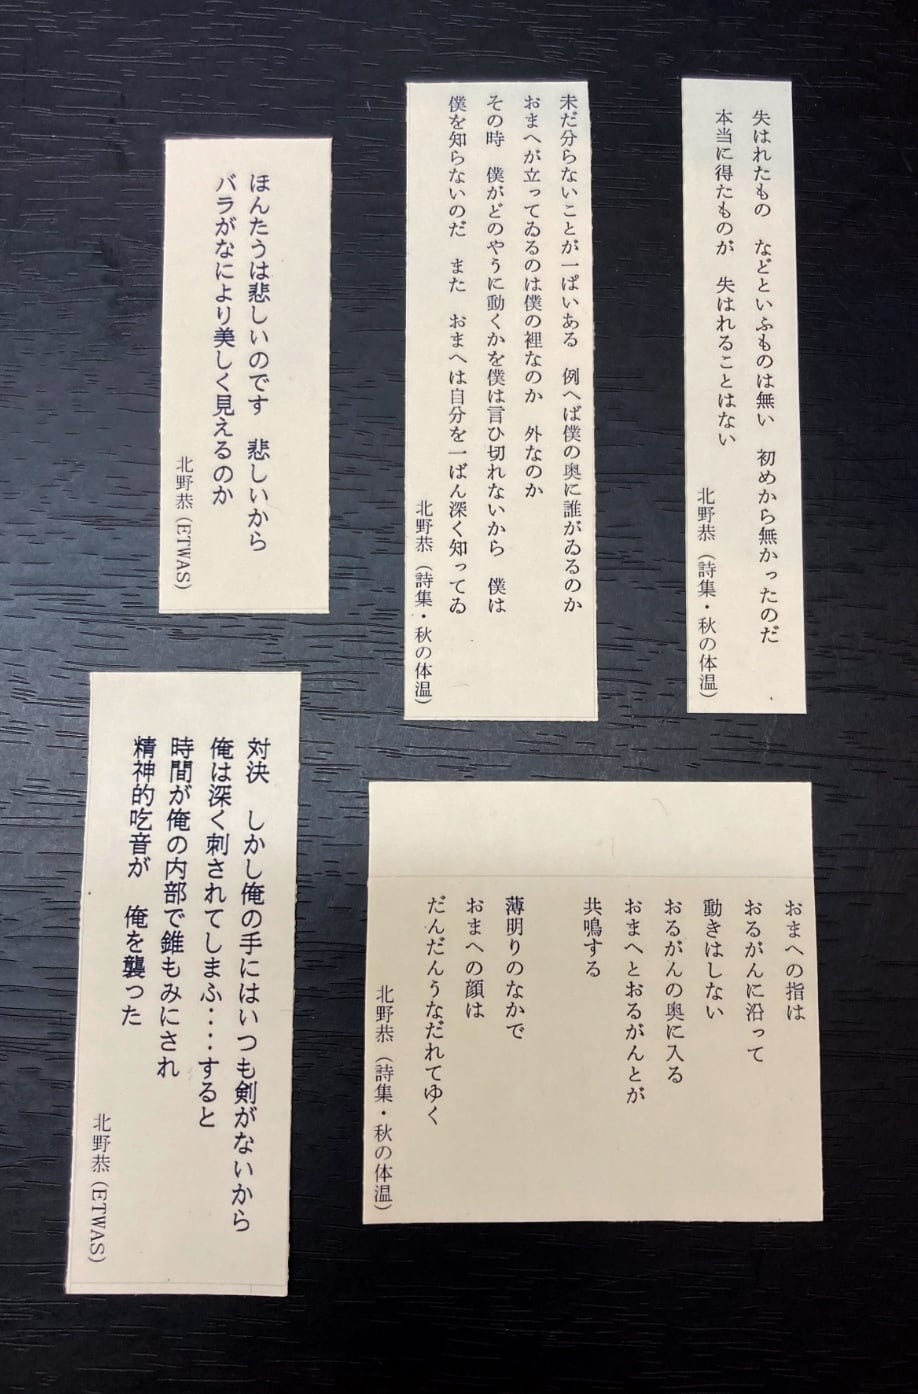 失はれたもの　などといふものは無い　初めから無かったのだ
本当に得たものが　失はれることはない
北野恭（詩集・秋の体温）
未だ分らないことが一ぱいある　例へば僕の奥に誰がゐるのか
おまへが立ってゐるのは僕の裡なのか　外なのか
その時　僕がどのやうに動くかを僕は言ひ切れないから　僕は
僕を知らないのだ　また　おまへは自分を一ばん深く知ってゐ
北野恭（詩集・秋の体温）
ほんたうは悲しいのです　悲しいから
バラがなにより美しく見えるのか
北野恭（ETWAS）
おまへの指は
おるがんに沿って
動きはしない
おるがんの奥に入る
おまへとおるがんとが
共鳴する
薄明りのなかで
おまへの顔は
だんだんうなだれてゆく
北野恭（詩集・秋の体温）
対決　しかし俺の手にはいつも剣がないから
俺は深く刺されてしまふ‥‥すると
時間が俺の内部で錐もみにされ
精神的吃音が　俺を襲った
北野恭（ETWAS）